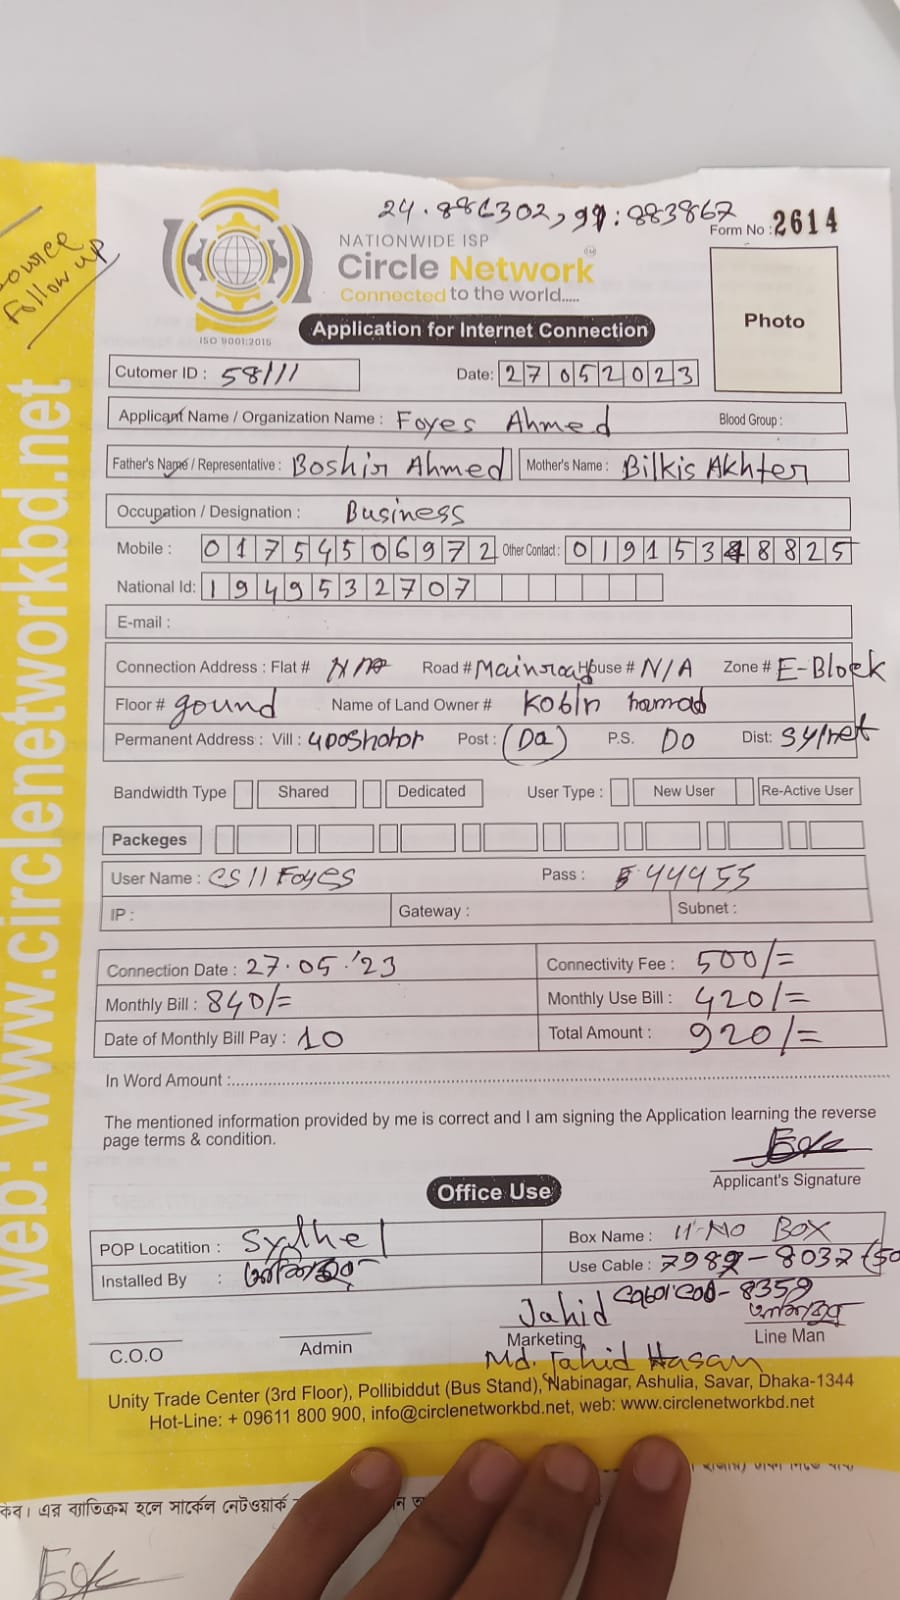 source
Follow up
24.881302, 91:883867
Form No : 2614
NATIONWIDE ISP
Circle Network
Connected to the world.....
ISO 9001:2015
Application for Internet Connection
Photo
Cutomer ID : 58111 Date: 27052023
Applicant Name / Organization Name : Foyes Ahmed Blood Group :
Father's Name / Representative : Boshir Ahmed Mother's Name : Bilkis Akhter
Occupation / Designation : Business
Mobile : 01754506972 Other Contact : 01915348825
National Id: 1949532707
E-mail :
Connection Address : Flat # N/A Road # Mainroad House # N/A Zone # E-Block
Floor # gound Name of Land Owner # Kobin
Permanent Address : Vill : uposhohor Post : (Do) P.S. Do Dist: Sylhet
Bandwidth Type Shared Dedicated User Type : New User Re-Active User
Packeges
User Name : CS11 Foyes Pass : 544455
IP : Gateway : Subnet :
Connection Date : 27.05.'23 Connectivity Fee : 500/=
Monthly Bill : 840/= Monthly Use Bill : 420/=
Date of Monthly Bill Pay : 10 Total Amount : 920/=
In Word Amount :
The mentioned information provided by me is correct and I am signing the Application learning the reverse
page terms & condition.
Applicant's Signature
Office Use
POP Locatition : Sylhet Box Name : 11-NO BOX
Installed By : Use Cable : 7987-8037 (50
8359
Jahid
C.O.O Admin Marketing Line Man
Md. Jahid Hasan
Unity Trade Center (3rd Floor), Pollibiddut (Bus Stand), Nabinagar, Ashulia, Savar, Dhaka-1344
Hot-Line: + 09611 800 900, info@circlenetworkbd.net, web: www.circlenetworkbd.net
web: www.circlenetworkbd.net
এর ব্যাতিক্রম হলে সার্কেল নেটওয়ার্ক